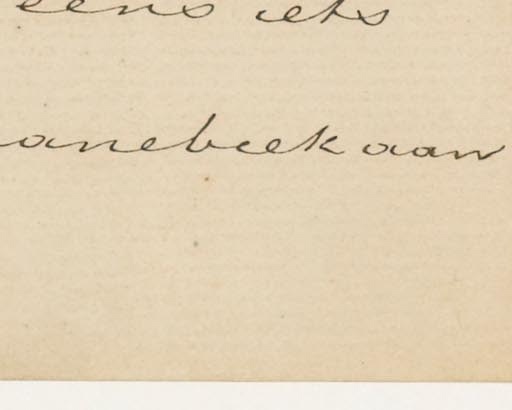 eens iets
anebeek aan